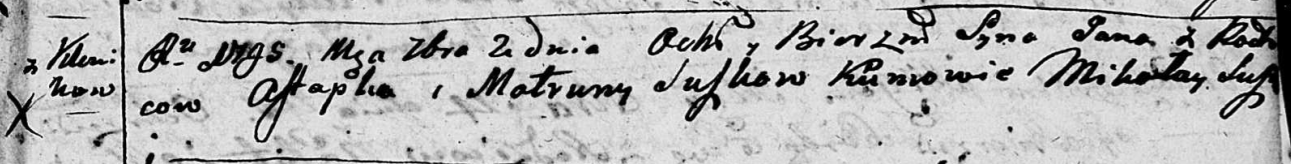 z Kleni
kow
Ru 1795. Mca Zbra 2 dnia Ochr y Bierzm Syna Jana z Rodzi
cow Astapka i Matruny Suszkow Kumowie Mikołay Susz